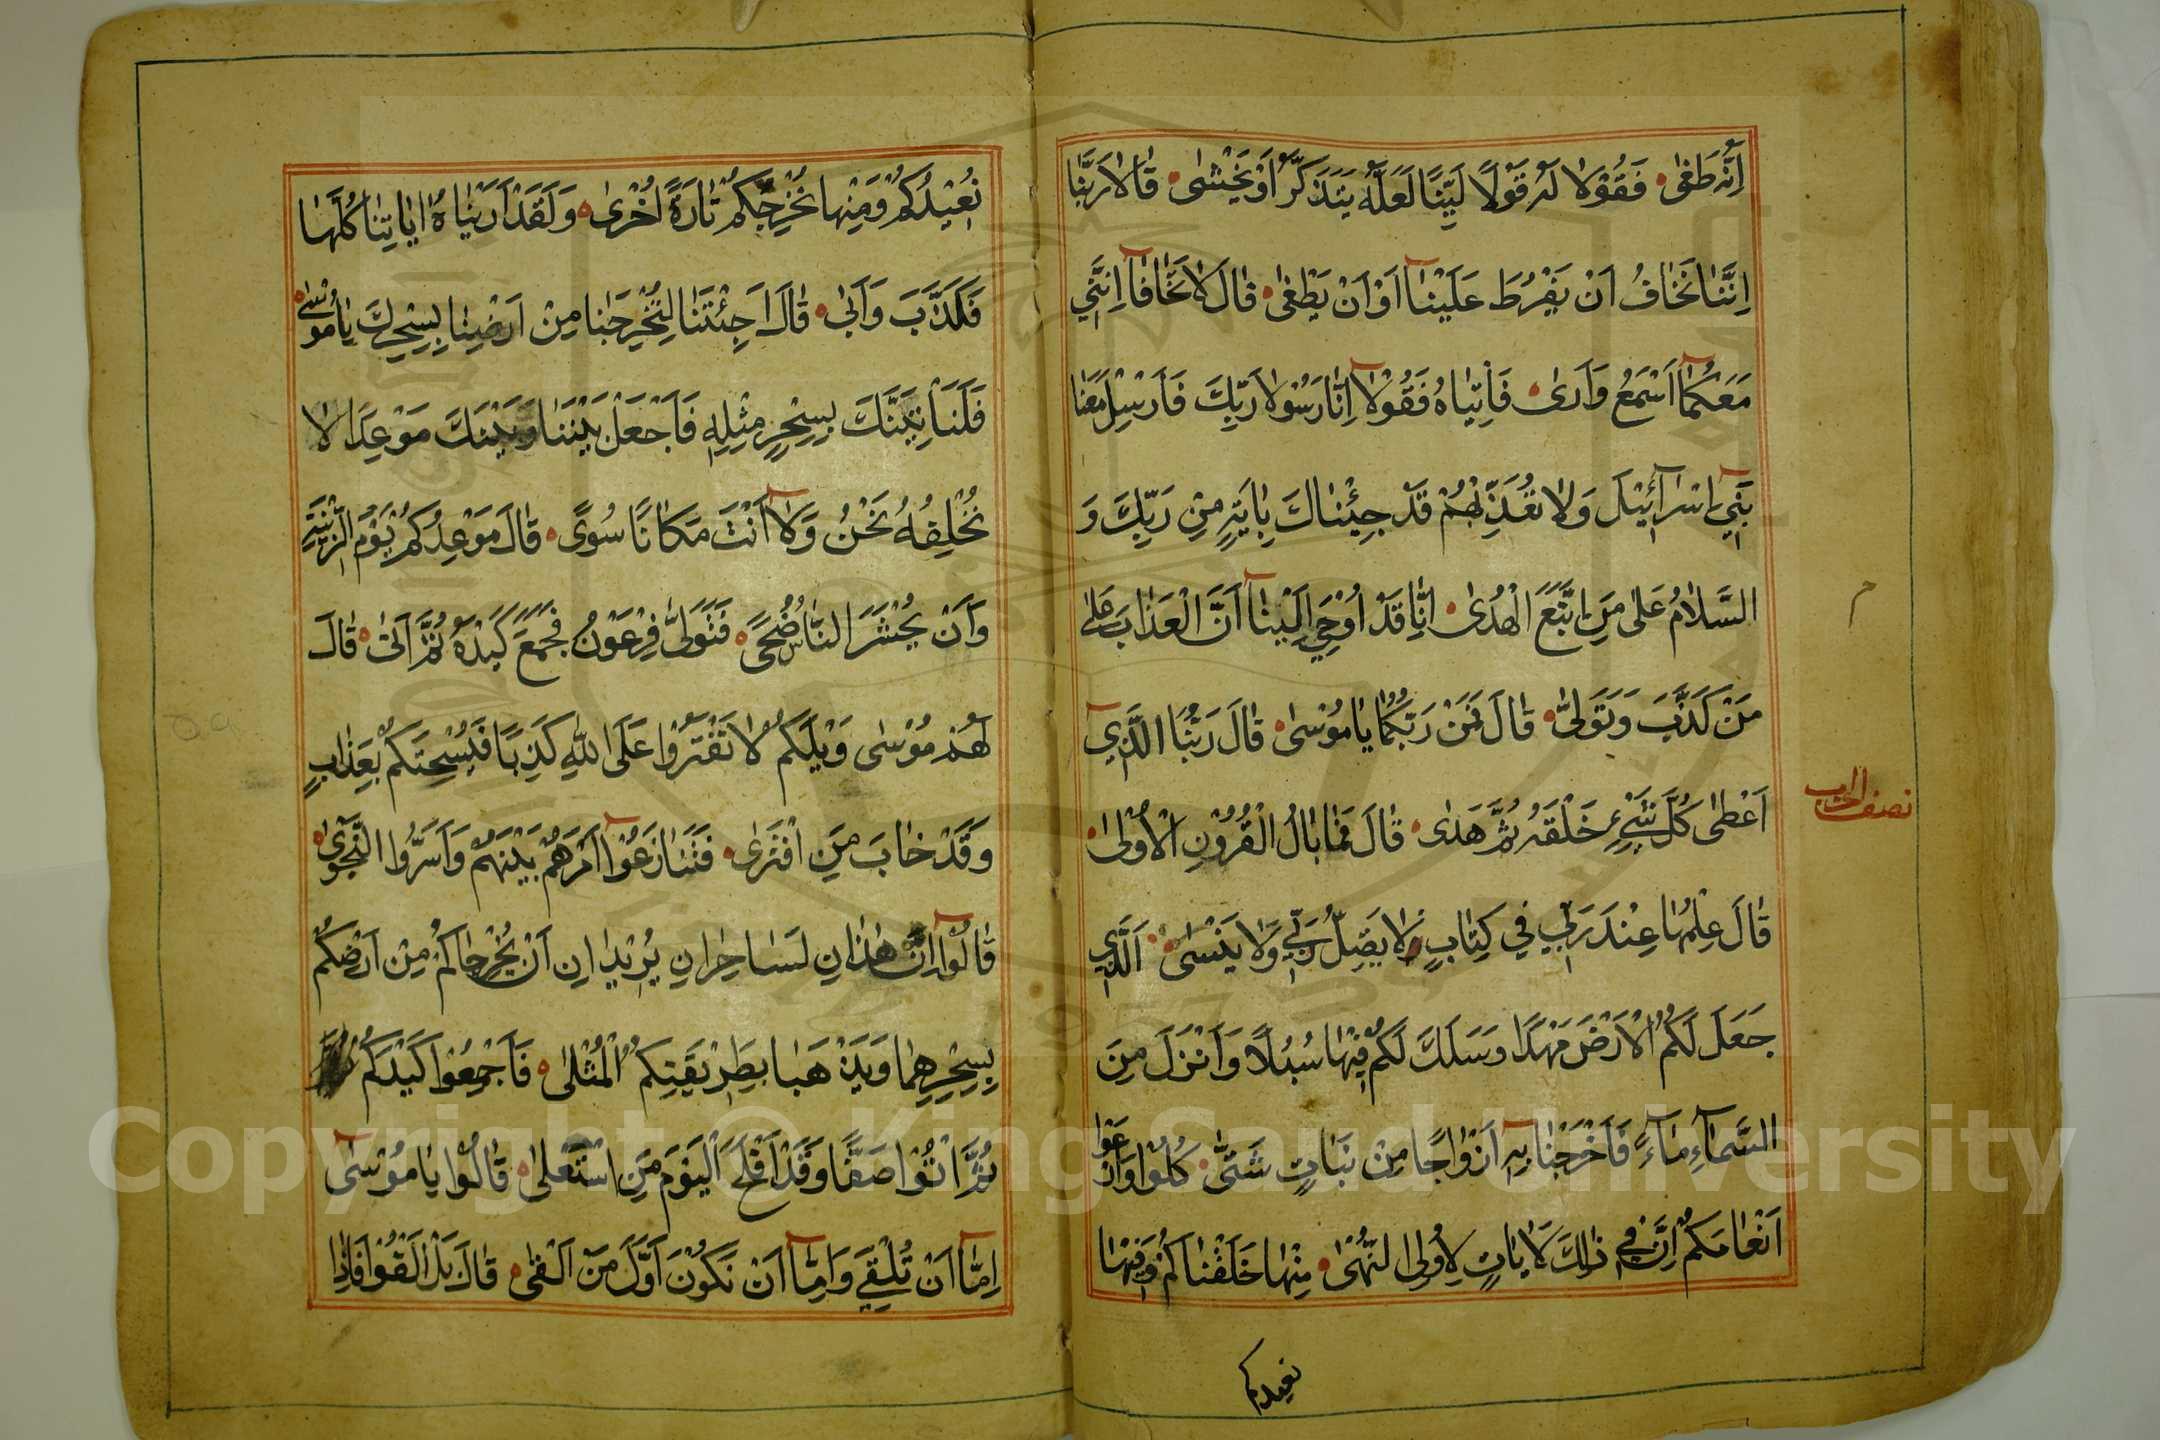 اِنَّهُ طَغٰى فَقُوْلَا لَهُ قَوْلًا لَيِّنًا لَعَلَّهُ يَتَذَكَّرُ اَوْ يَخْشٰى قَالَا رَبَّنَا
اِنَّنَا نَخَافُ اَنْ يَفْرُطَ عَلَيْنَآ اَوْ اَنْ يَطْغٰى قَالَ لَا تَخَافَآ اِنَّنِي
مَعَكُمَآ اَسْمَعُ وَاَرٰى فَأْتِيَاهُ فَقُوْلَآ اِنَّا رَسُوْلَا رَبِّكَ فَاَرْسِلْ مَعَنَا
بَنِيٓ اِسْرَآئِيْلَ وَلَا تُعَذِّبْهُمْ قَدْ جِئْنَاكَ بِاٰيَةٍ مِنْ رَبِّكَ وَ
السَّلَامُ عَلٰى مَنِ اتَّبَعَ الْهُدٰى اِنَّا قَدْ اُوْحِيَ اِلَيْنَآ اَنَّ الْعَذَابَ عَلٰى
مَنْ كَذَّبَ وَتَوَلّٰى قَالَ فَمَنْ رَبُّكُمَا يَا مُوْسٰى قَالَ رَبُّنَا الَّذِيٓ
اَعْطٰى كُلَّ شَيْءٍ خَلْقَهُ ثُمَّ هَدٰى قَالَ فَمَا بَالُ الْقُرُوْنِ الْاُوْلٰى
قَالَ عِلْمُهَا عِنْدَ رَبِّي فِي كِتَابٍ لَا يَضِلُّ رَبِّي وَلَا يَنْسٰى اَلَّذِي
جَعَلَ لَكُمُ الْاَرْضَ مَهْدًا وَسَلَكَ لَكُمْ فِيْهَا سُبُلًا وَاَنْزَلَ مِنَ
السَّمَآءِ مَآءً فَاَخْرَجْنَا بِهٓ اَزْوَاجًا مِنْ نَبَاتٍ شَتّٰى كُلُوْا وَارْعَوْا
اَنْعَامَكُمْ اِنَّ فِي ذٰلِكَ لَاٰيَاتٍ لِاُولِي النُّهٰى مِنْهَا خَلَقْنَاكُمْ وَفِيْهَا
نعيدكم
نصف الحزب
نُعِيْدُكُمْ وَمِنْهَا نُخْرِجُكُمْ تَارَةً اُخْرٰى وَلَقَدْ اَرَيْنَاهُ اٰيَاتِنَا كُلَّهَا
فَكَذَّبَ وَاَبٰى قَالَ اَجِئْتَنَا لِتُخْرِجَنَا مِنْ اَرْضِنَا بِسِحْرِكَ يَا مُوْسٰى
فَلَنَأْتِيَنَّكَ بِسِحْرٍ مِثْلِهِ فَاجْعَلْ بَيْنَنَا وَبَيْنَكَ مَوْعِدًا لَا
نُخْلِفُهُ نَحْنُ وَلَآ اَنْتَ مَكَانًا سُوًى قَالَ مَوْعِدُكُمْ يَوْمُ الزِّيْنَةِ
وَاَنْ يُحْشَرَ النَّاسُ ضُحًى فَتَوَلّٰى فِرْعَوْنُ فَجَمَعَ كَيْدَهُ ثُمَّ اَتٰى قَالَ
لَهُمْ مُوْسٰى وَيْلَكُمْ لَا تَفْتَرُوْا عَلَى اللّٰهِ كَذِبًا فَيُسْحِتَكُمْ بِعَذَابٍ
وَقَدْ خَابَ مَنِ افْتَرٰى فَتَنَازَعُوْٓا اَمْرَهُمْ بَيْنَهُمْ وَاَسَرُّوا النَّجْوٰى
قَالُوْٓا اِنْ هٰذَانِ لَسَاحِرَانِ يُرِيْدَانِ اَنْ يُخْرِجَاكُمْ مِنْ اَرْضِكُمْ
بِسِحْرِهِمَا وَيَذْهَبَا بِطَرِيْقَتِكُمُ الْمُثْلٰى فَاَجْمِعُوْا كَيْدَكُمْ
ثُمَّ ائْتُوْا صَفًّا وَقَدْ اَفْلَحَ الْيَوْمَ مَنِ اسْتَعْلٰى قَالُوْا يَا مُوْسٰٓى
اِمَّآ اَنْ تُلْقِيَ وَاِمَّآ اَنْ نَكُوْنَ اَوَّلَ مَنْ اَلْقٰى قَالَ بَلْ اَلْقُوْا فَاِذَا
Copyright © King Saud University